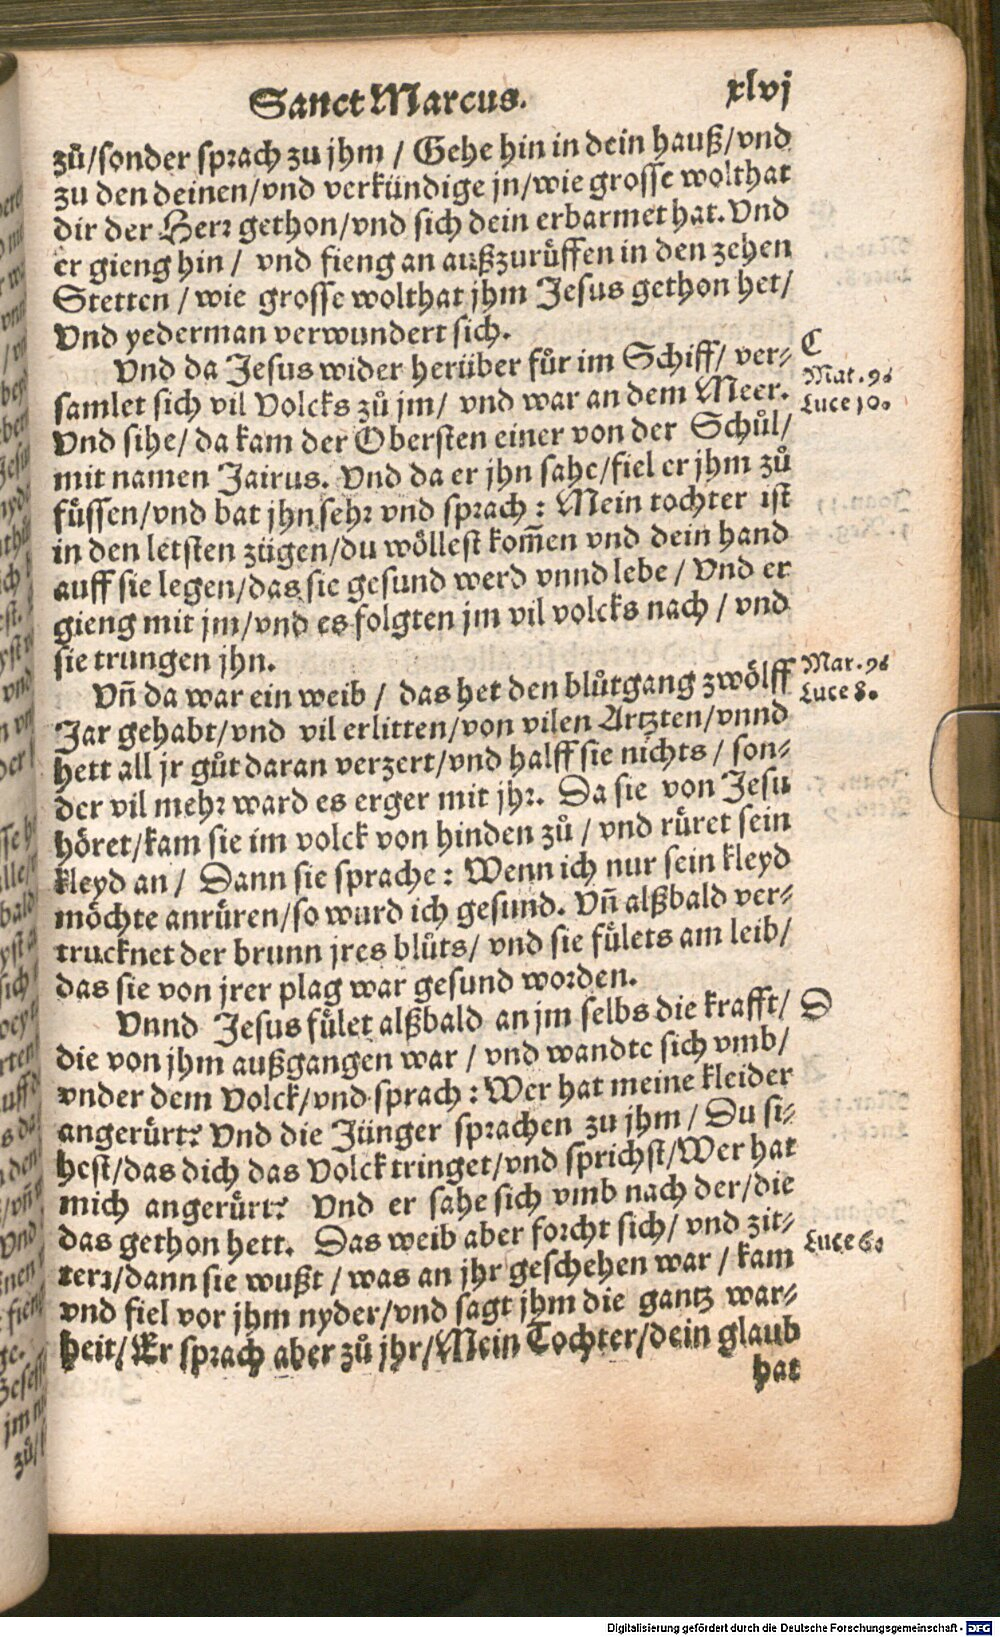 Sanct Marcus. xlvj
zů/sonder sprach zu jhm / Gehe hin in dein hauß/vnd
zu den deinen/vnd verkündige jn/wie grosse wolthat
dir der Herr gethon/vnd sich dein erbarmet hat. Vnd
er gieng hin / vnd fieng an außzurůffen in den zehen
Stetten / wie grosse wolthat jhm Jesus gethon het/
Vnd yederman verwundert sich.
Vnd da Jesus wider herüber fůr im Schiff/ ver-
samlet sich vil Volcks zů jm/ vnd war an dem Meer.
Vnd sihe/ da kam der Obersten einer von der Schůl/
mit namen Jairus. Vnd da er jhn sahe/fiel er jhm zů
fůssen/vnd bat jhn sehr vnd sprach : Mein tochter ist
in den letsten zügen/du wöllest kom̃en vnd dein hand
auff sie legen/das sie gesund werd vnnd lebe / Vnd er
gieng mit jm/vnd es folgten jm vil volcks nach / vnd
sie trungen jhn.
Vñ da war ein weib / das het den blůtgang zwölff
Jar gehabt/vnd vil erlitten/von vilen Artzten/vnnd
hett all jr gůt daran verzert/vnd halff sie nichts / son-
der vil mehr ward es erger mit jhr. Da sie von Jesu
höret/kam sie im volck von hinden zů / vnd růret sein
kleyd an / Dann sie sprache : Wenn ich nur sein kleyd
möchte anrüren/so wurd ich gesund. Vñ alßbald ver-
trucknet der brunn jres blůts/ vnd sie fůlets am leib/
das sie von jrer plag war gesund worden.
Vnnd Jesus fůlet alßbald an jm selbs die krafft/
die von jhm außgangen war / vnd wandte sich vmb/
vnder dem Volck/vnd sprach : Wer hat meine kleider
angerůrt? Vnd die Jünger sprachen zu jhm / Du si-
hest/das dich das Volck tringet/vnd sprichst/Wer hat
mich angerůrt? Vnd er sahe sich vmb nach der/die
das gethon hett. Das weib aber forcht sich/ vnd zit-
tert/dann sie wußt / was an jhr geschehen war / kam
vnd fiel vor jhm nyder/vnd sagt jhm die gantz war-
heit/ Er sprach aber zů jhr/Mein Tochter/dein glaub
hat
C
Mat. 9.
Luce 10.
Mar. 9.
Luce 8.
D
Luce 6.
Digitalisierung gefördert durch die Deutsche Forschungsgemeinschaft - DFG